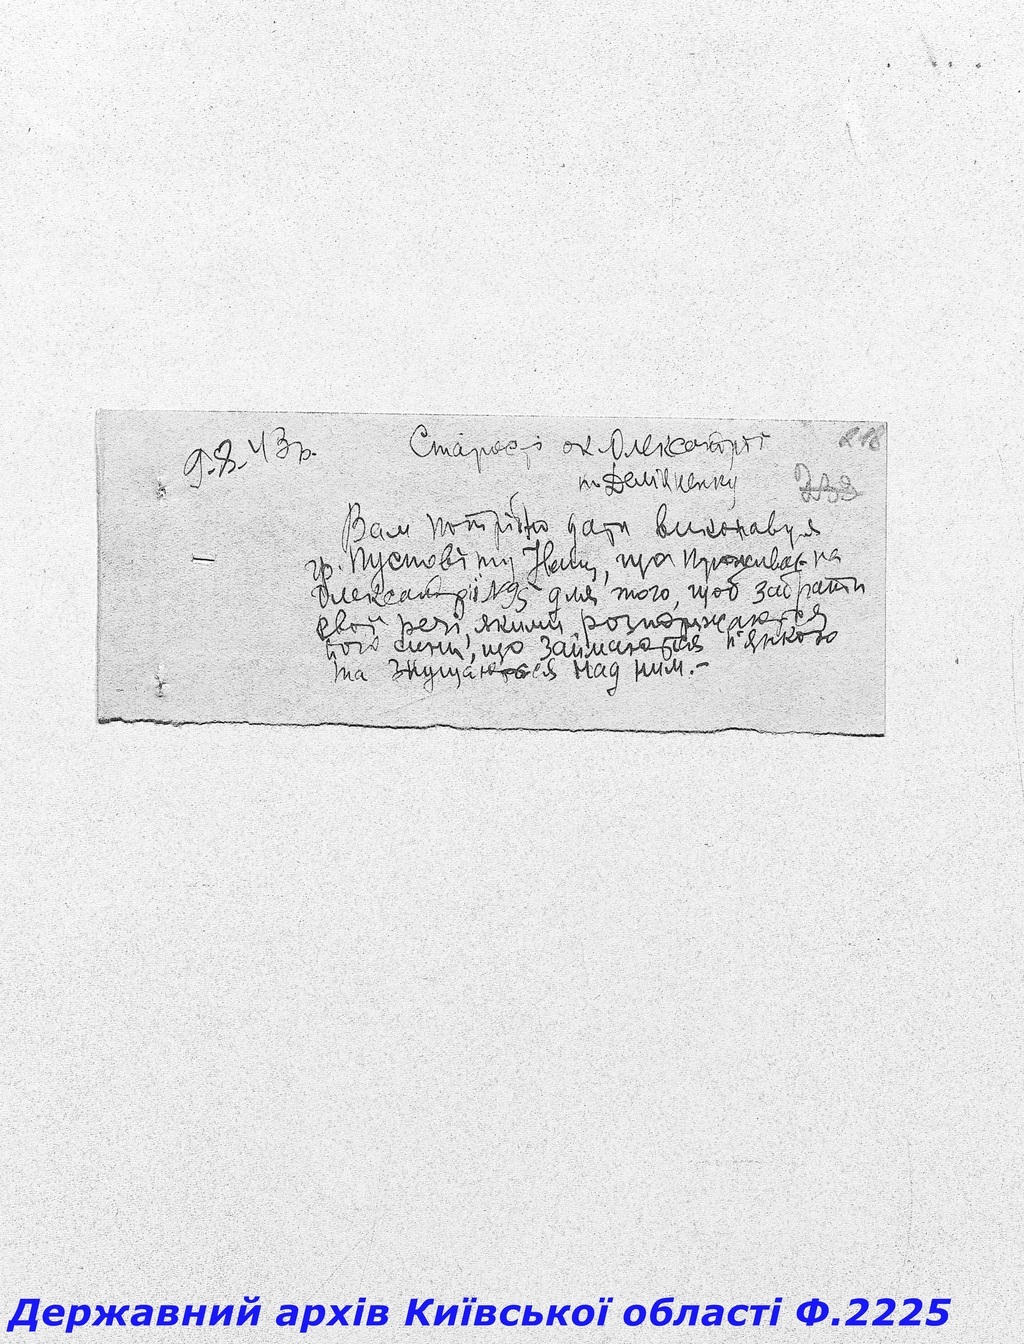 9.8.43 р.
Старості ок. Олександрії
п. Демʼяненку
Вам потрібно дати виконавця
гр. Пустовіту, що проживає на
Олександрії № 95 для того, щоб забрати
свої речі, якими розпоряжаются
його сини, що займаються пʼянкою
та знущаються над ним.-
218
Державний архів Київської області Ф.2225